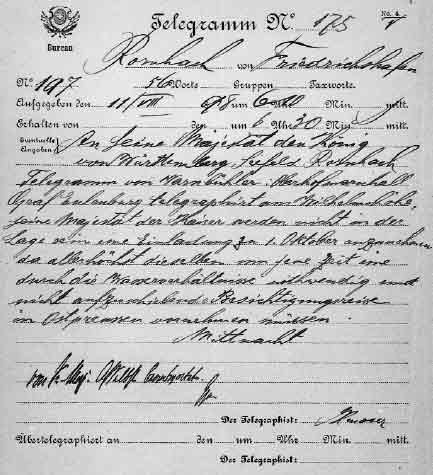 Telegramm No. 175
No. 4.
Bureau
Rombach von Friedrichshafen
No. 197 56 Worte Gruppen Taxworte.
Aufgegeben den 11/VIII 98 6 Uhr Min. mitt.
Erhalten von den um 6 Uhr 30 Min. mitt.
Eventuelle Angaben
An Seine Majestät den König
von Württemberg Seefeld Rombach
Telegramm von Varnbühler. Oberhofmarschall
Graf Eulenburg telegraphirt aus Wilhelmshöhe,
seine Majestät der Kaiser werden nicht in der
Lage sein eine Einladung zu 1. Oktober anzunehmen
da allerhöchst dieselben um jene Zeit eine
durch die Wasserverhältnisse nothwendig und
nicht aufzuschiebende Besichtigungsreise
in Ostpreussen vornehmen müssen.
Mittnacht
von Sr. Maj.
Der Telegraphist:
Der Telegraphist:
Übertelegraphiert an den um Uhr Min. mitt.